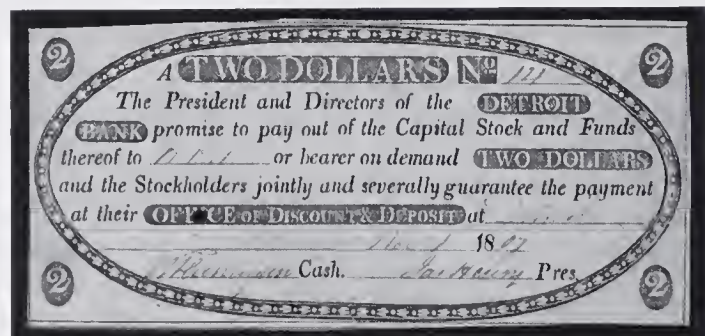 2 2
A TWO DOLLARS No
The President and Directors of the DETROIT
BANK promise to pay out of the Capital Stock and Funds
thereof to or bearer on demand TWO DOLLARS
and the Stockholders jointly and severally guarantee the payment
at their OFFICE OF DISCOUNT & DEPOSIT at
18
Cash. Jas Henry Pres.
2 2